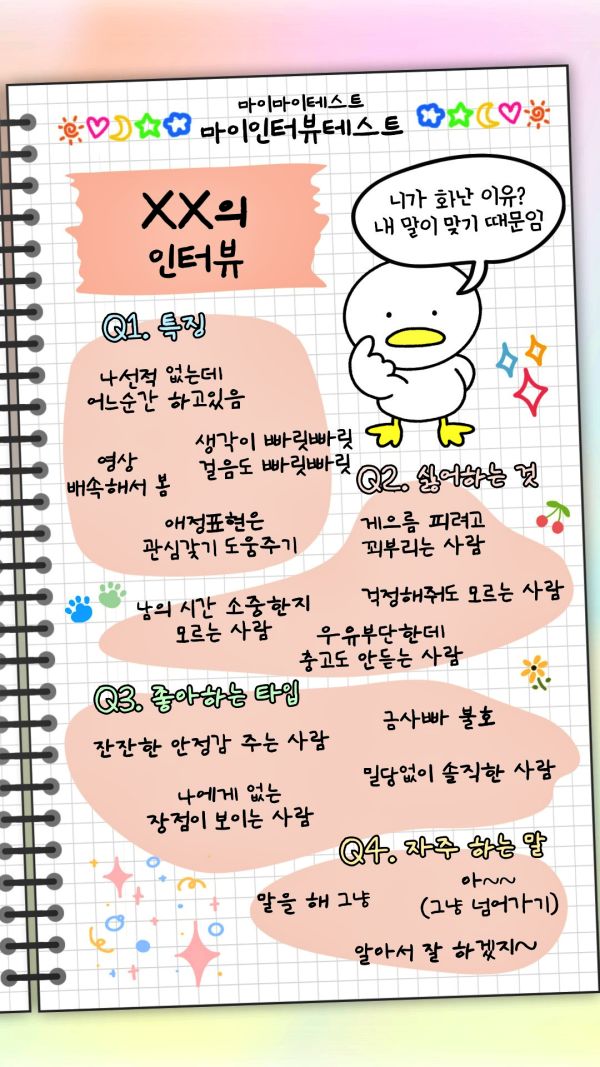 마이마이테스트
마이인터뷰테스트
XX의
인터뷰
니가 화난 이유?
내 말이 맞기 때문임
Q1. 특징
나선적 없는데
어느순간 하고있음
생각이 빠릿빠릿
걸음도 빠릿빠릿
영상
배속해서 봄
애정표현은
관심갖기 도움주기
Q2. 싫어하는 것
게으름 피려고
꾀부리는 사람
걱정해줘도 모르는 사람
남의 시간 소중한지
모르는 사람
우유부단한데
충고도 안듣는 사람
Q3. 좋아하는 타입
잔잔한 안정감 주는 사람
금사빠 불호
밀당없이 솔직한 사람
나에게 없는
장점이 보이는 사람
Q4. 자주 하는 말
말을 해 그냥
아~~
(그냥 넘어가기)
알아서 잘 하겠지~